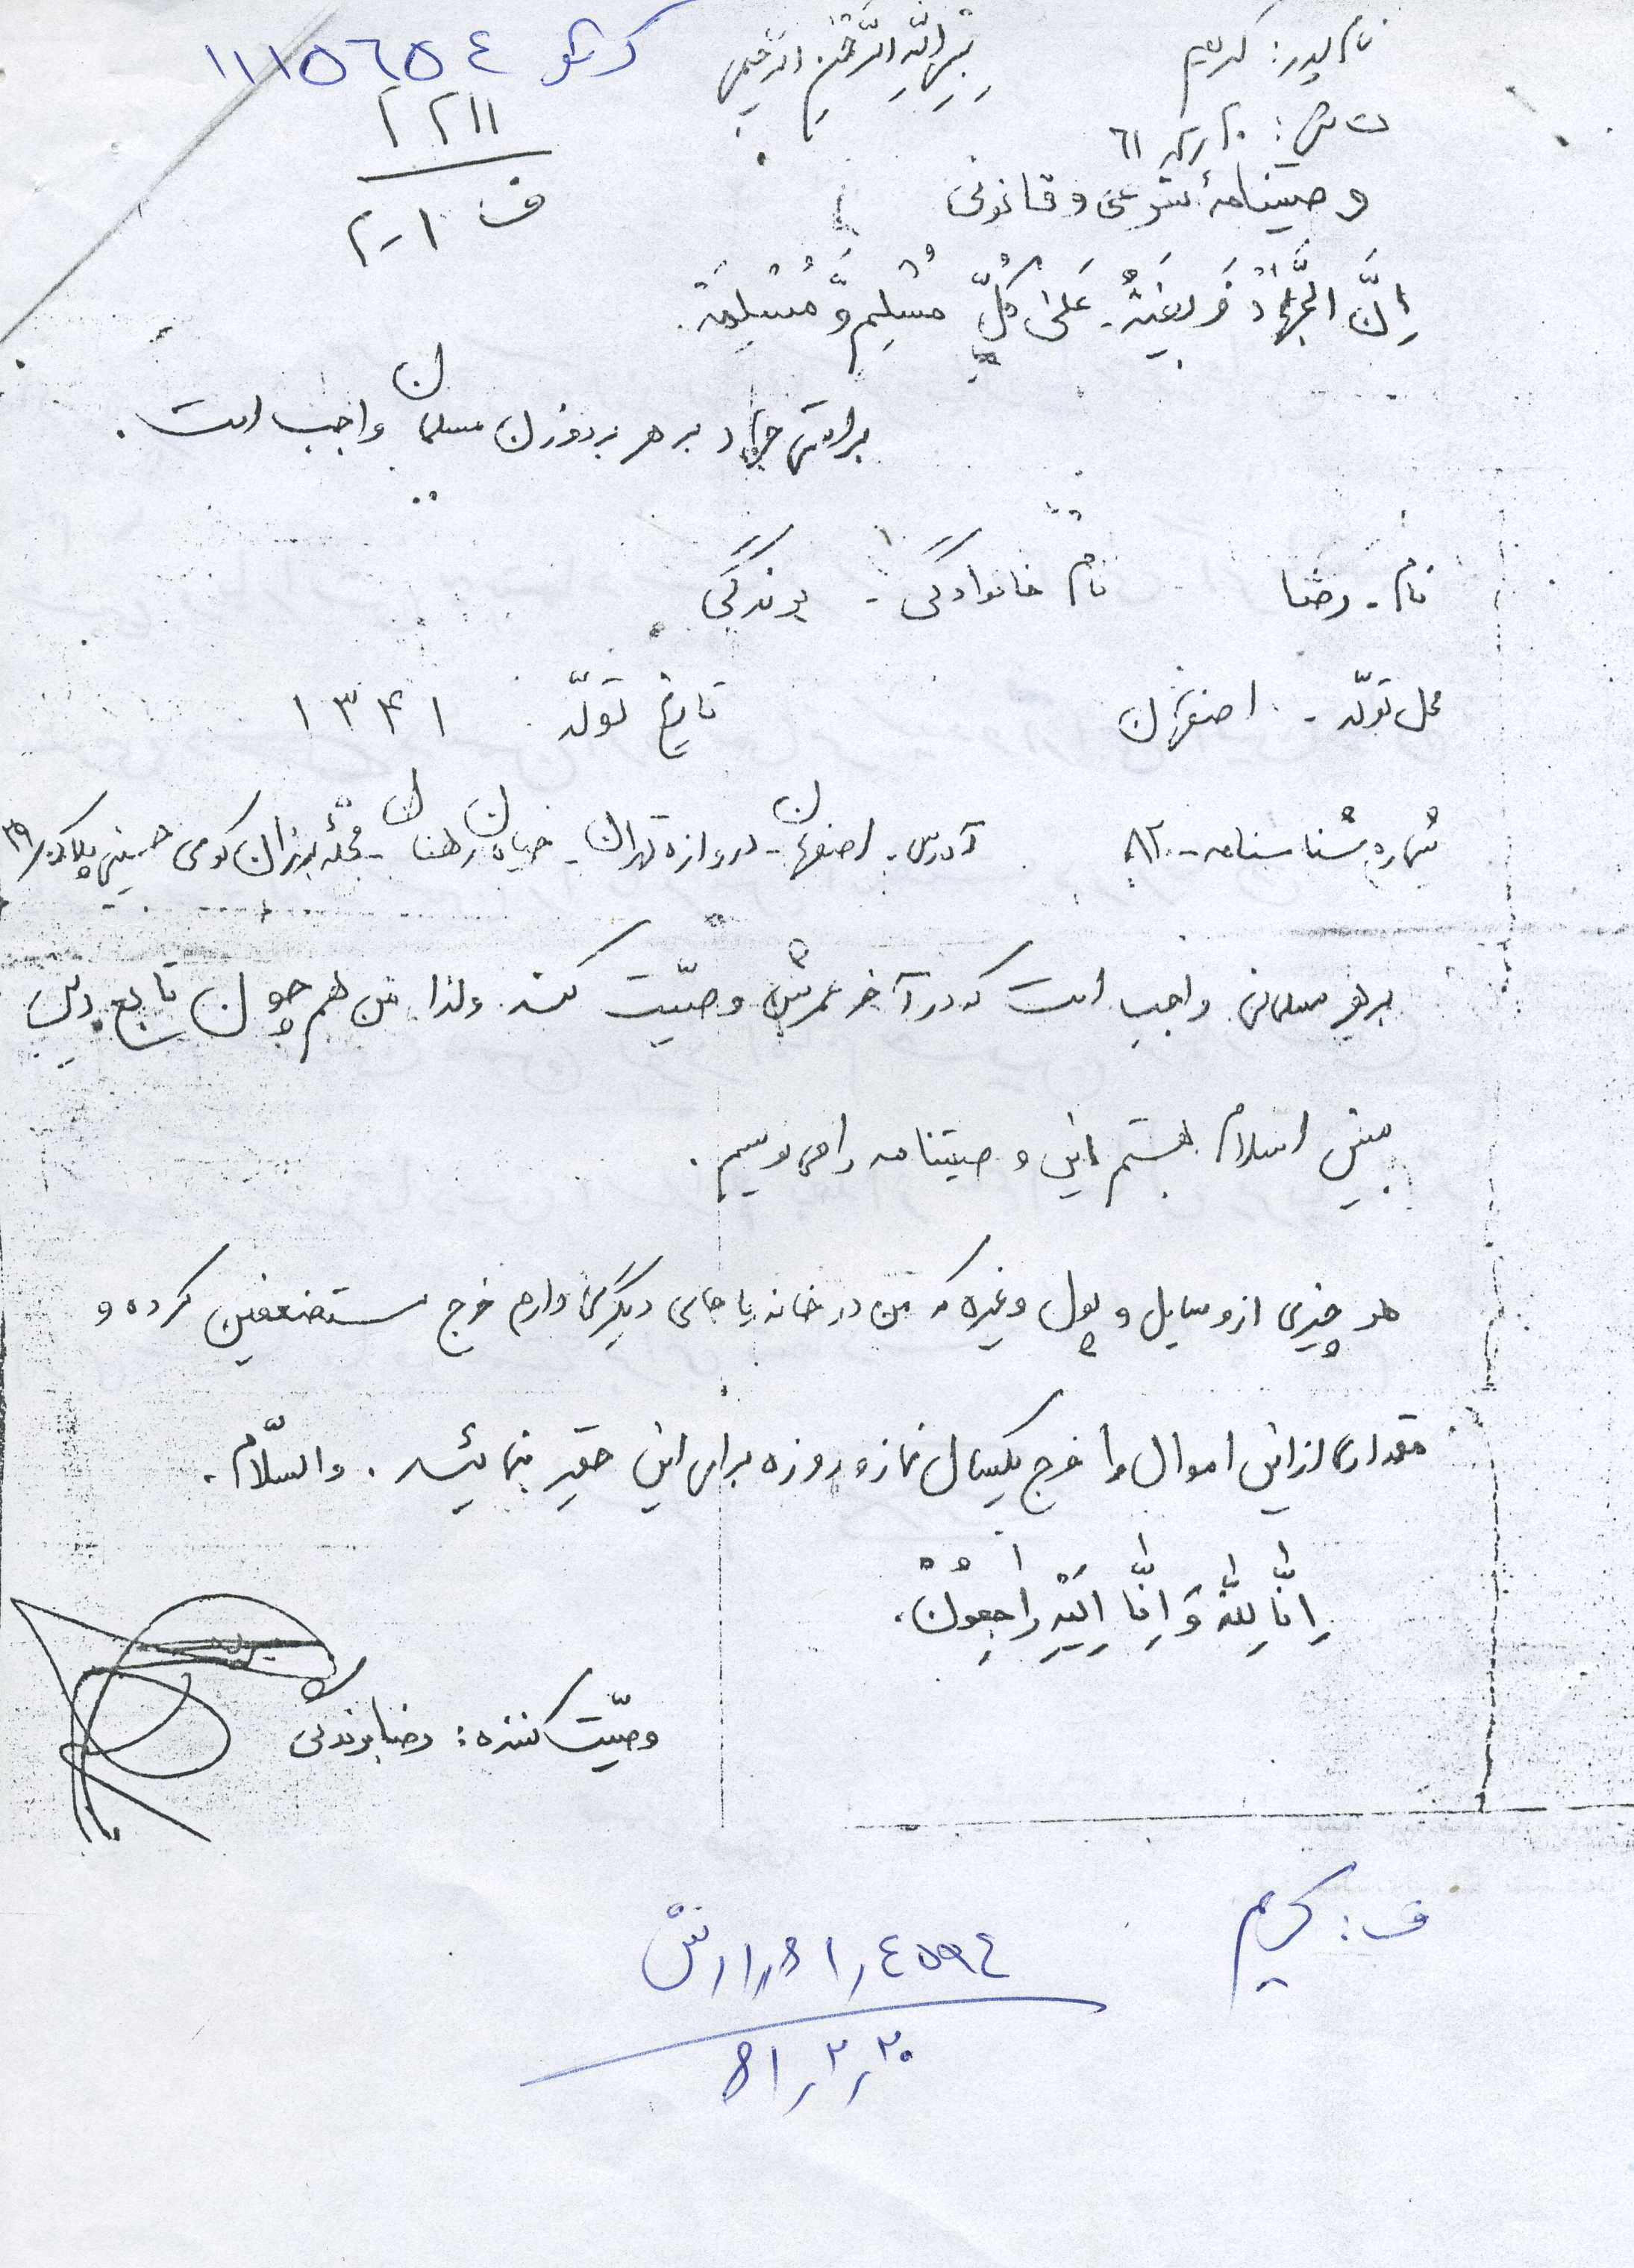 نام پدر: کریم
بِسْمِ اللّهِ الرَّحْمنِ الرَّحیمِ
کد ۱۱۱۵٦٥٤
۲۲۱۱
ف ۲۰۱
وصیتنامهٔ شرعی و قانونی
اِنَّ الجَّهادَ فَریضَةُ عَلیٰ کُلِّ مُسْلِمٍ وَّ مُسْلِمَة.
براستی جهاد بر هر مرد و زن مسلمان واجب است.
نام - رضا نام خانوادگی - بوندگی
محل تولّد - اصفهان تاریخ تولّد ۱۳۴۱
شماره شناسنامه - ۸۲ آدرس - اصفهان - دروازه تهران - خیابان رهنان - محلّه برزان کوی حسینی پلاک ۳۹
بر هر مسلمانی واجب است که در آخر عمرش وصیّت کند. ولذا من هم چون تابع دین
مبین اسلام هستم این وصیتنامه را می نویسم.
هر چیزی از وسایل و پول و غیره که من در خانه یا جای دیگری دارم خرج مستضعفین کرده و
مقداری از این اموال را خرج یکسال نماز و روزه برای این حقیر بنمائید. والسّلام.
اِنّا لِلّهِ وَ اِنّا اِلَیْهِ راجِعُوْنْ.
وصیّت کننده: رضا بوندگی
ف: کریم
٤٥٩٤
۸۱٫۲٫۲۰